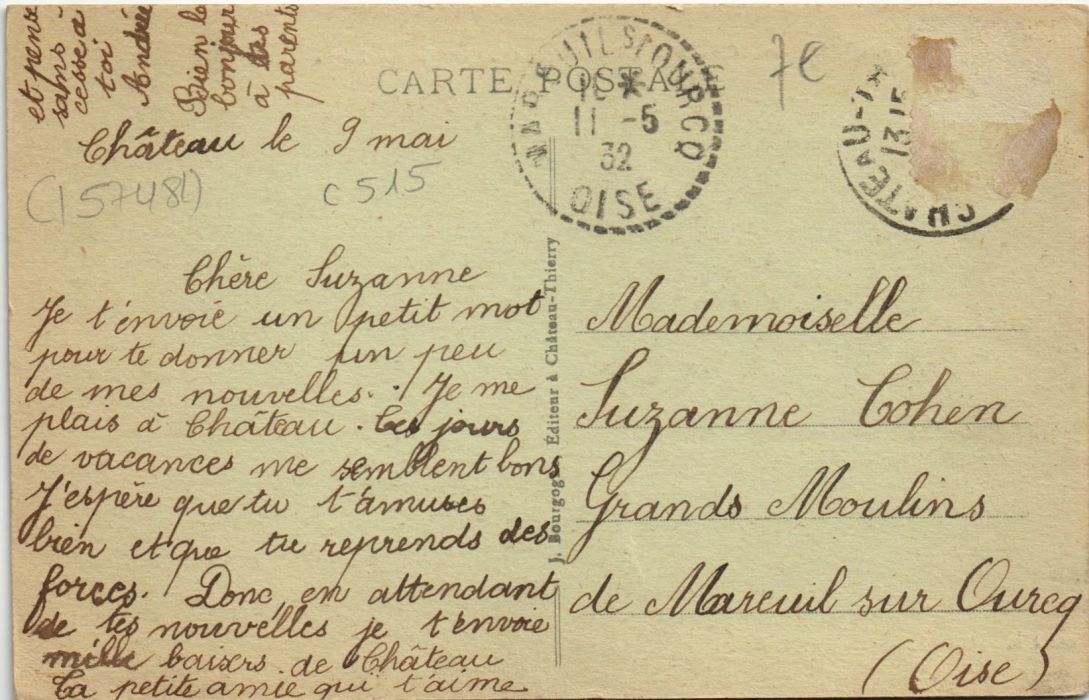 et pense
sans
cesse à
toi
Andrée
Bien le
bonjour
à tes
parents
CARTE POSTALE
Château le 9 mai
(157481)
C 515
7€
MAREUIL S/OURCQ
18 *
11 -5
32
OISE
CHATEAU-TH
13 15
Chère Suzanne
Je t'envoie un petit mot
pour te donner un peu
de mes nouvelles. Je me
plais à Château. Ces jours
de vacances me semblent bons
J'espère que tu t'amuses
bien et que tu reprends des
forces. Donc en attendant
de tes nouvelles je t'envoie
mille baisers de Château
Ta petite amie qui t'aime
J. Bourgogne, Éditeur à Château-Thierry
Mademoiselle
Suzanne Cohen
Grands Moulins
de Mareuil sur Ourcq
(Oise)